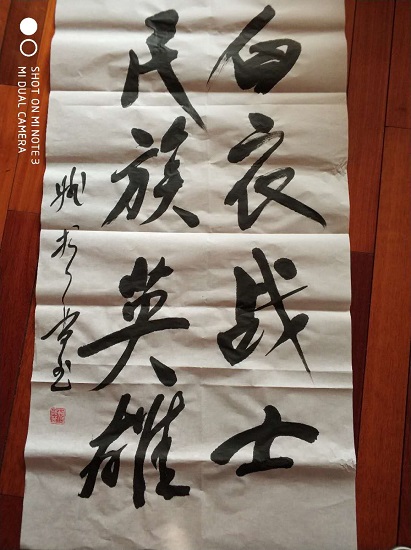 白衣战士
民族英雄
SHOT ON MI NOTE 3
MI DUAL CAMERA